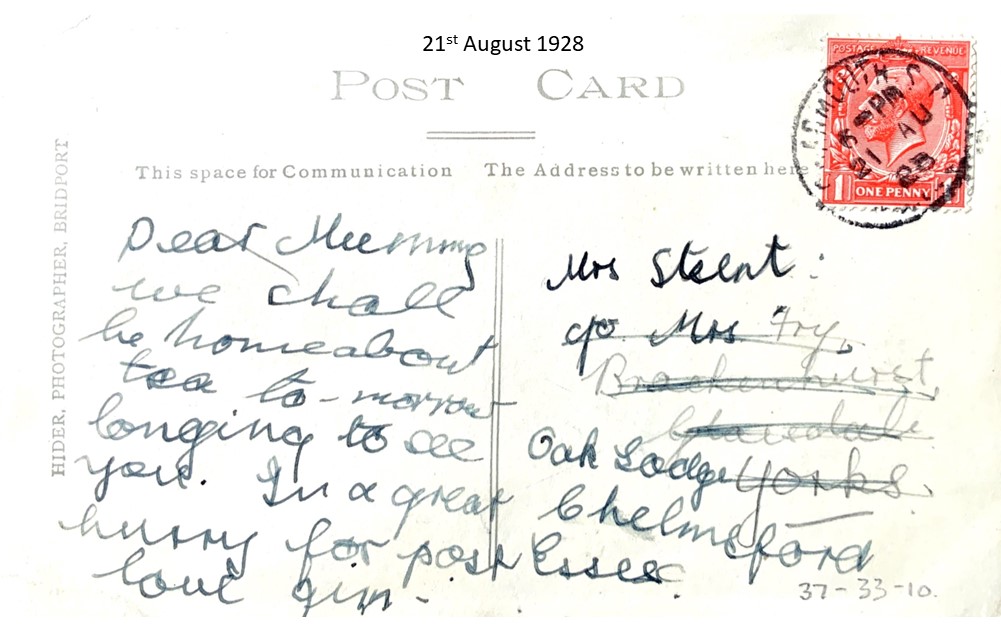 21st August 1928
POST CARD
This space for Communication
The Address to be written here
HIDER, PHOTOGRAPHER, BRIDPORT
POSTAGE REVENUE
ONE PENNY
PM
21 AU
28
Dear Mummy
we shall
be home about
tea to-morrow
longing to see
you. In a great
hurry for post
love
Mrs
c/o Mrs Fry,
Brackenhurst,
Yorks.
Oak Lodge
Chelmsford
Essex
37-33-10.